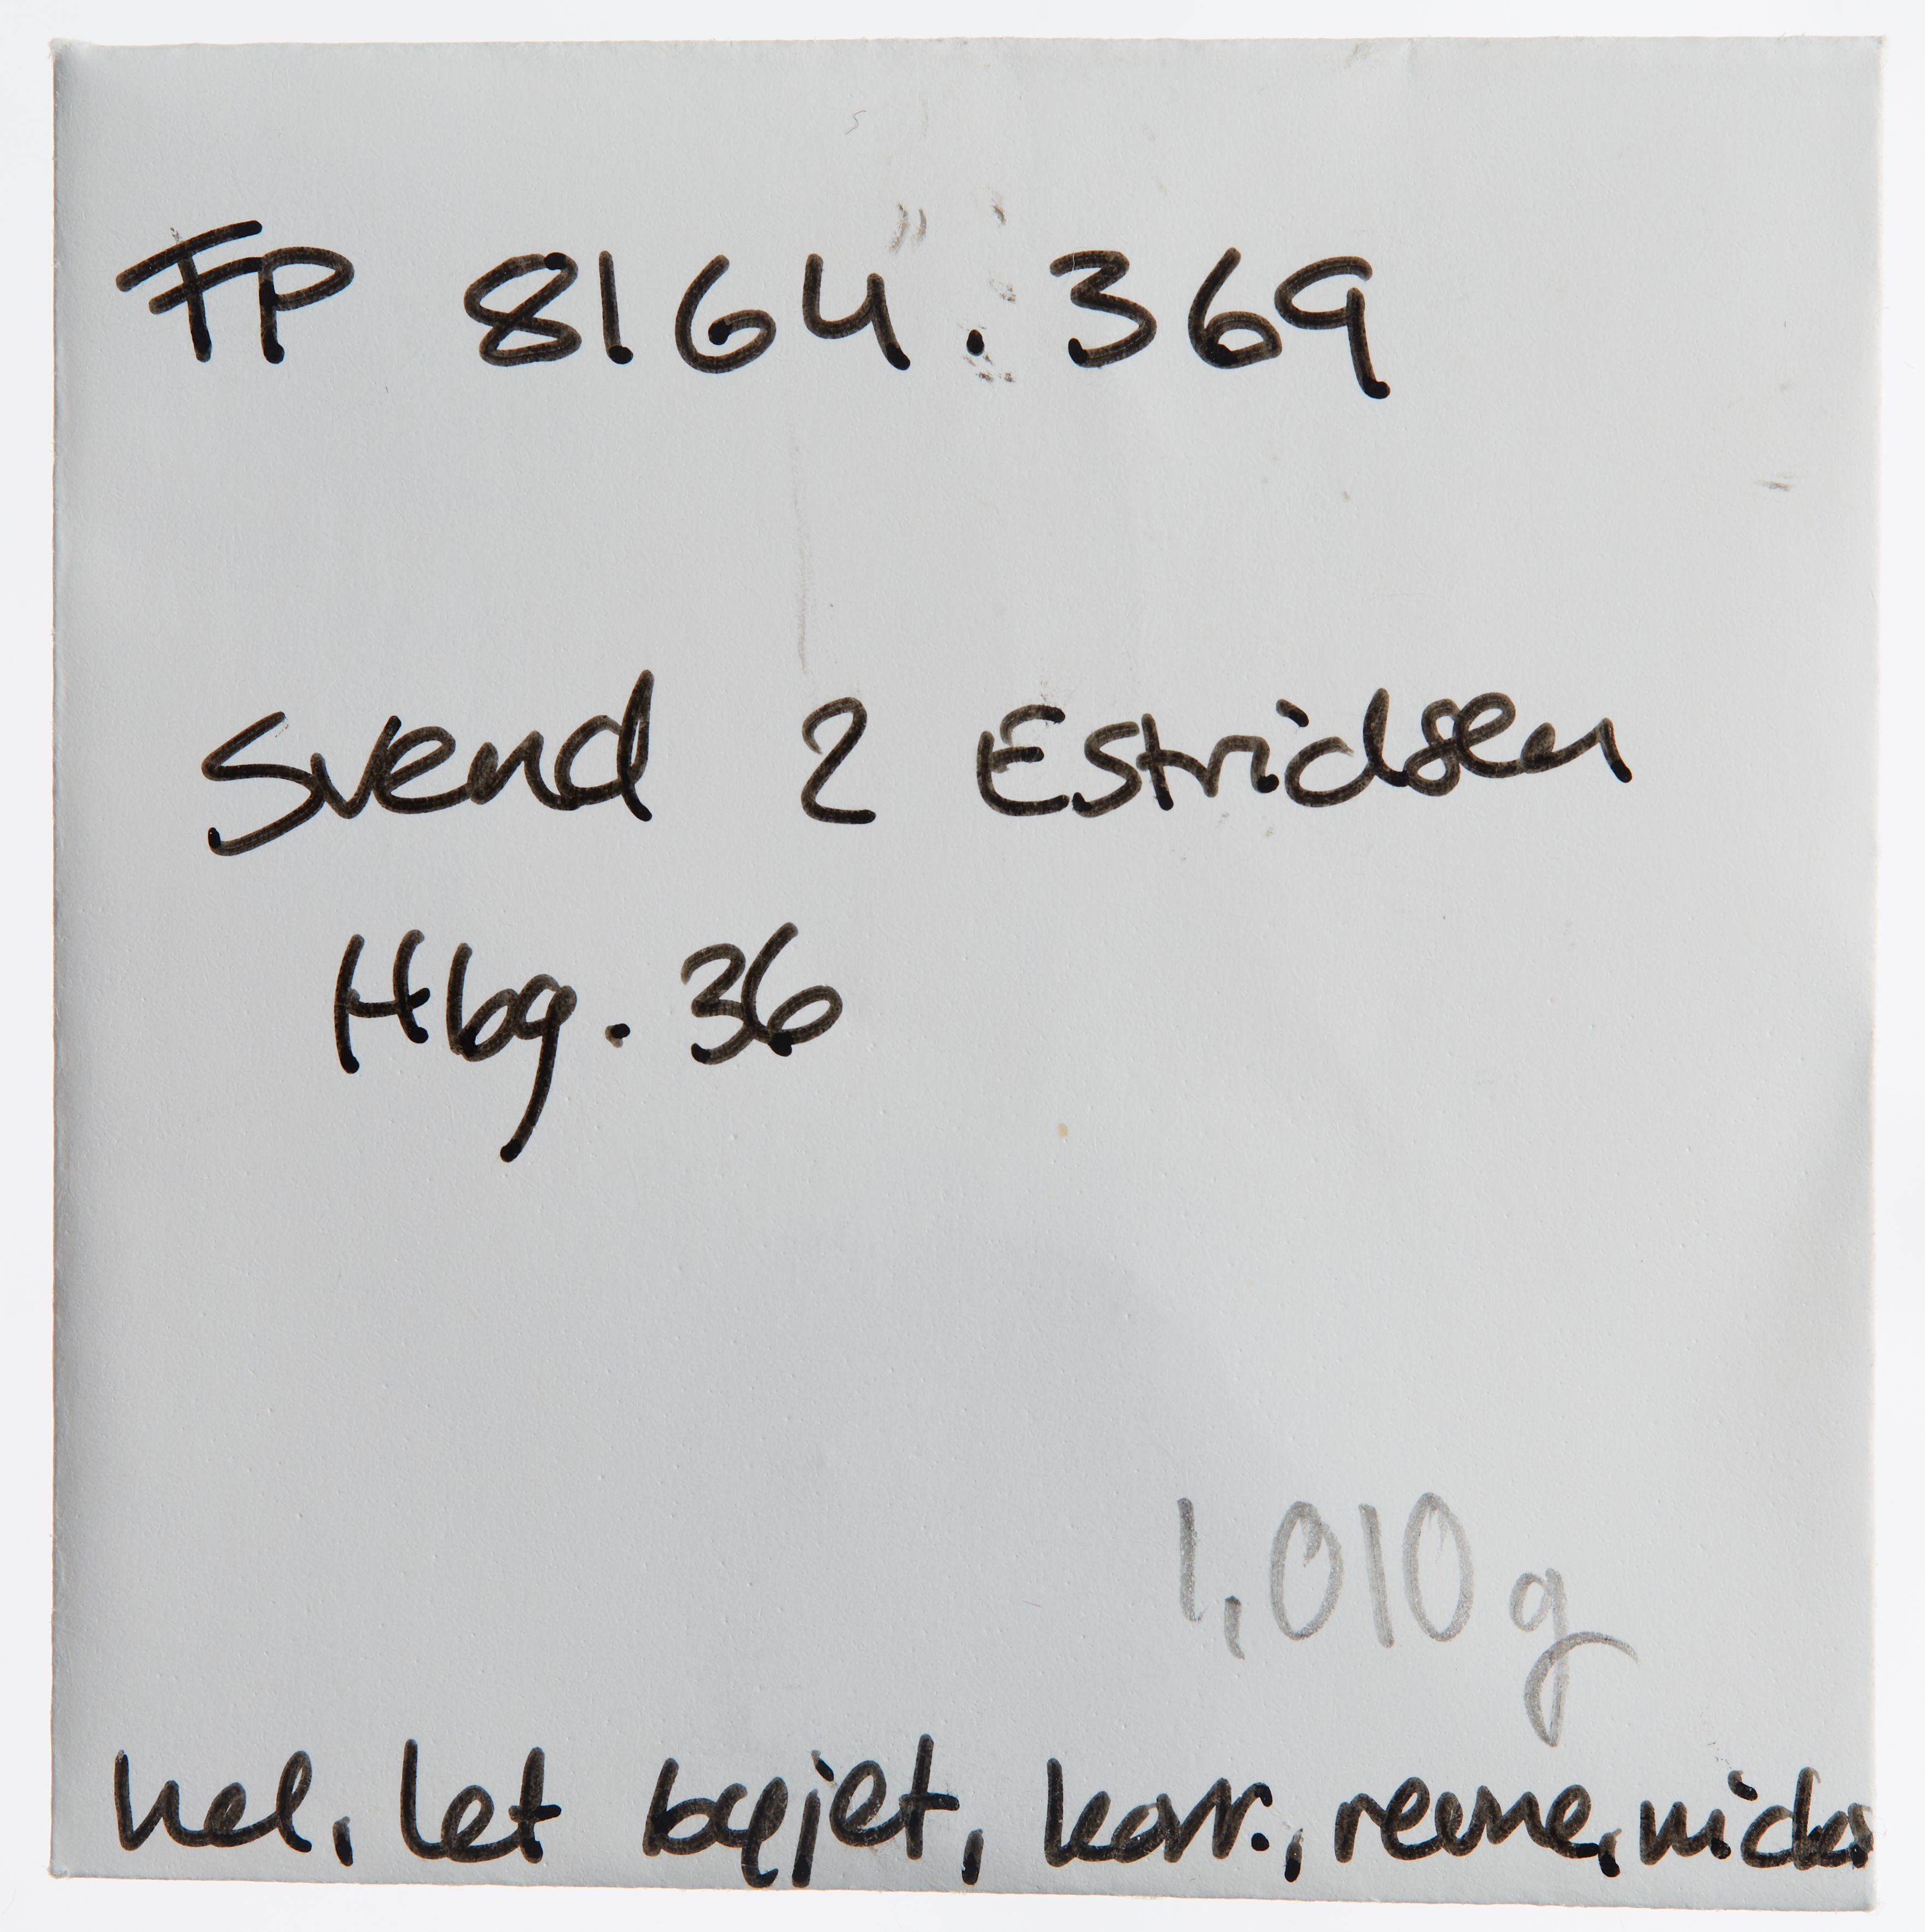 FP 8164.369
Svend 2 Estridsen
Hbg. 36
1,010 g
hel, let bøjet, korr., revne,